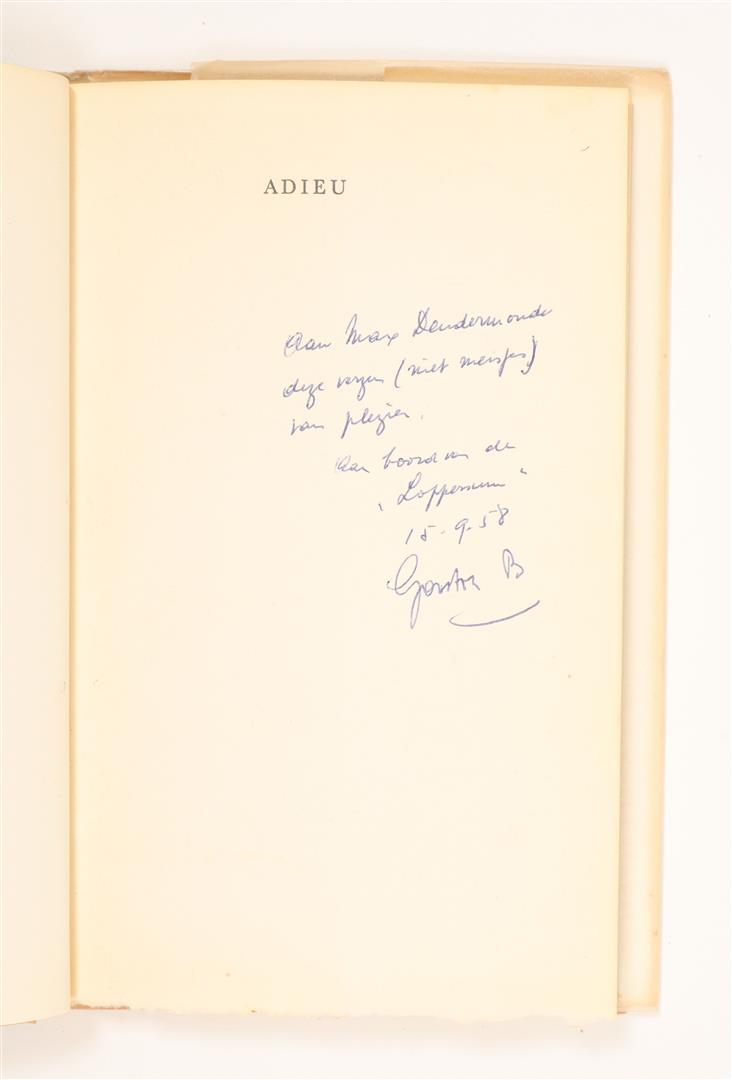 ADIEU
Aan Max Dendermonde
deze verzen (niet meisjes)
van plezier.
Aan boord van de
"Loppersum"
15-9-58
Gaston B